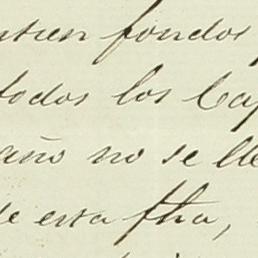 fondos
todos los Cap
año no se lle
de esta fha,